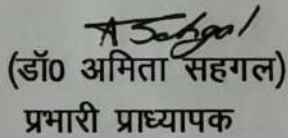 A Sehgal
(डॉ0 अमिता सहगल)
प्रभारी प्राध्यापक